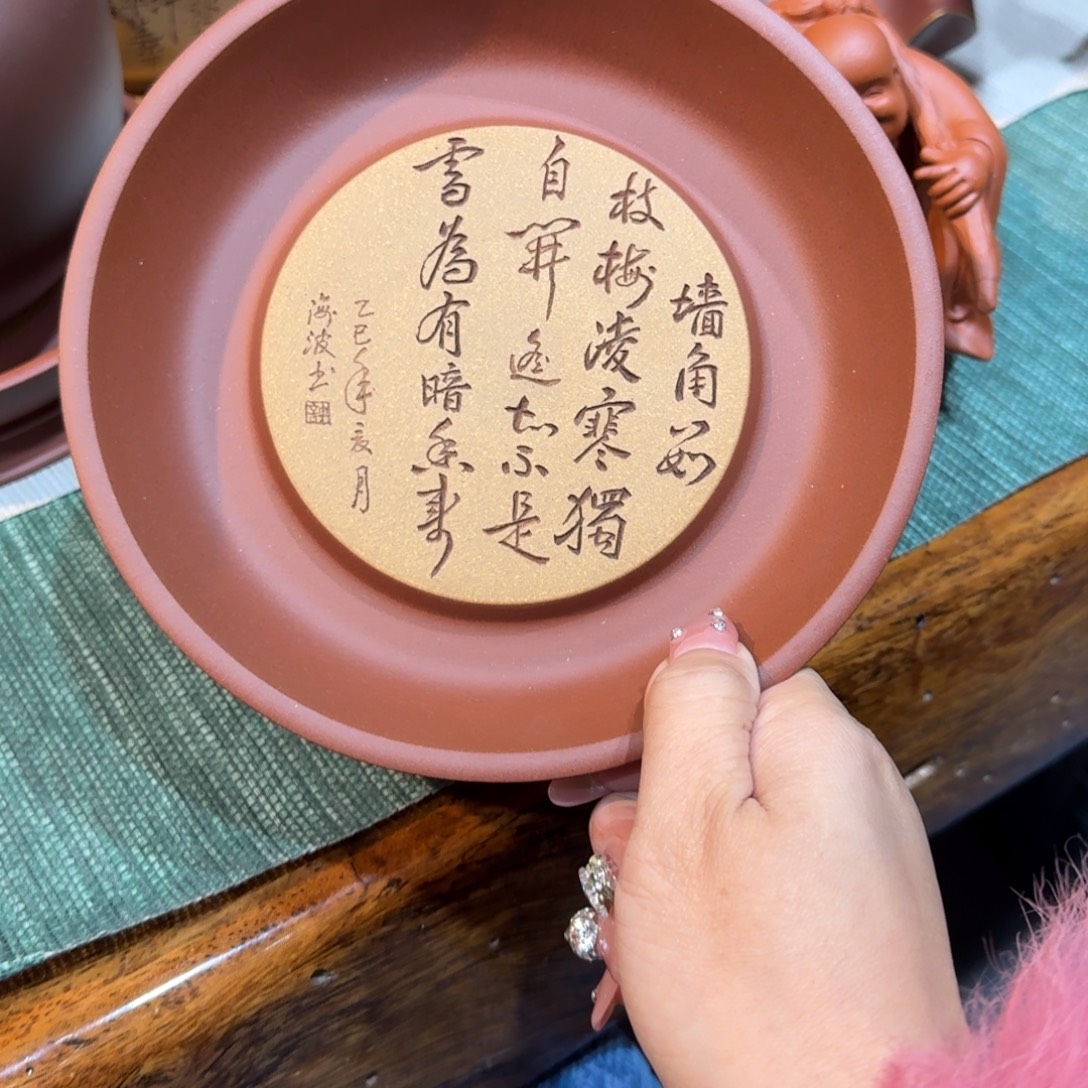 墙角数
枝梅凌寒獨
自開遙知不是
雪為有暗香来
乙巳年亥月
海波书